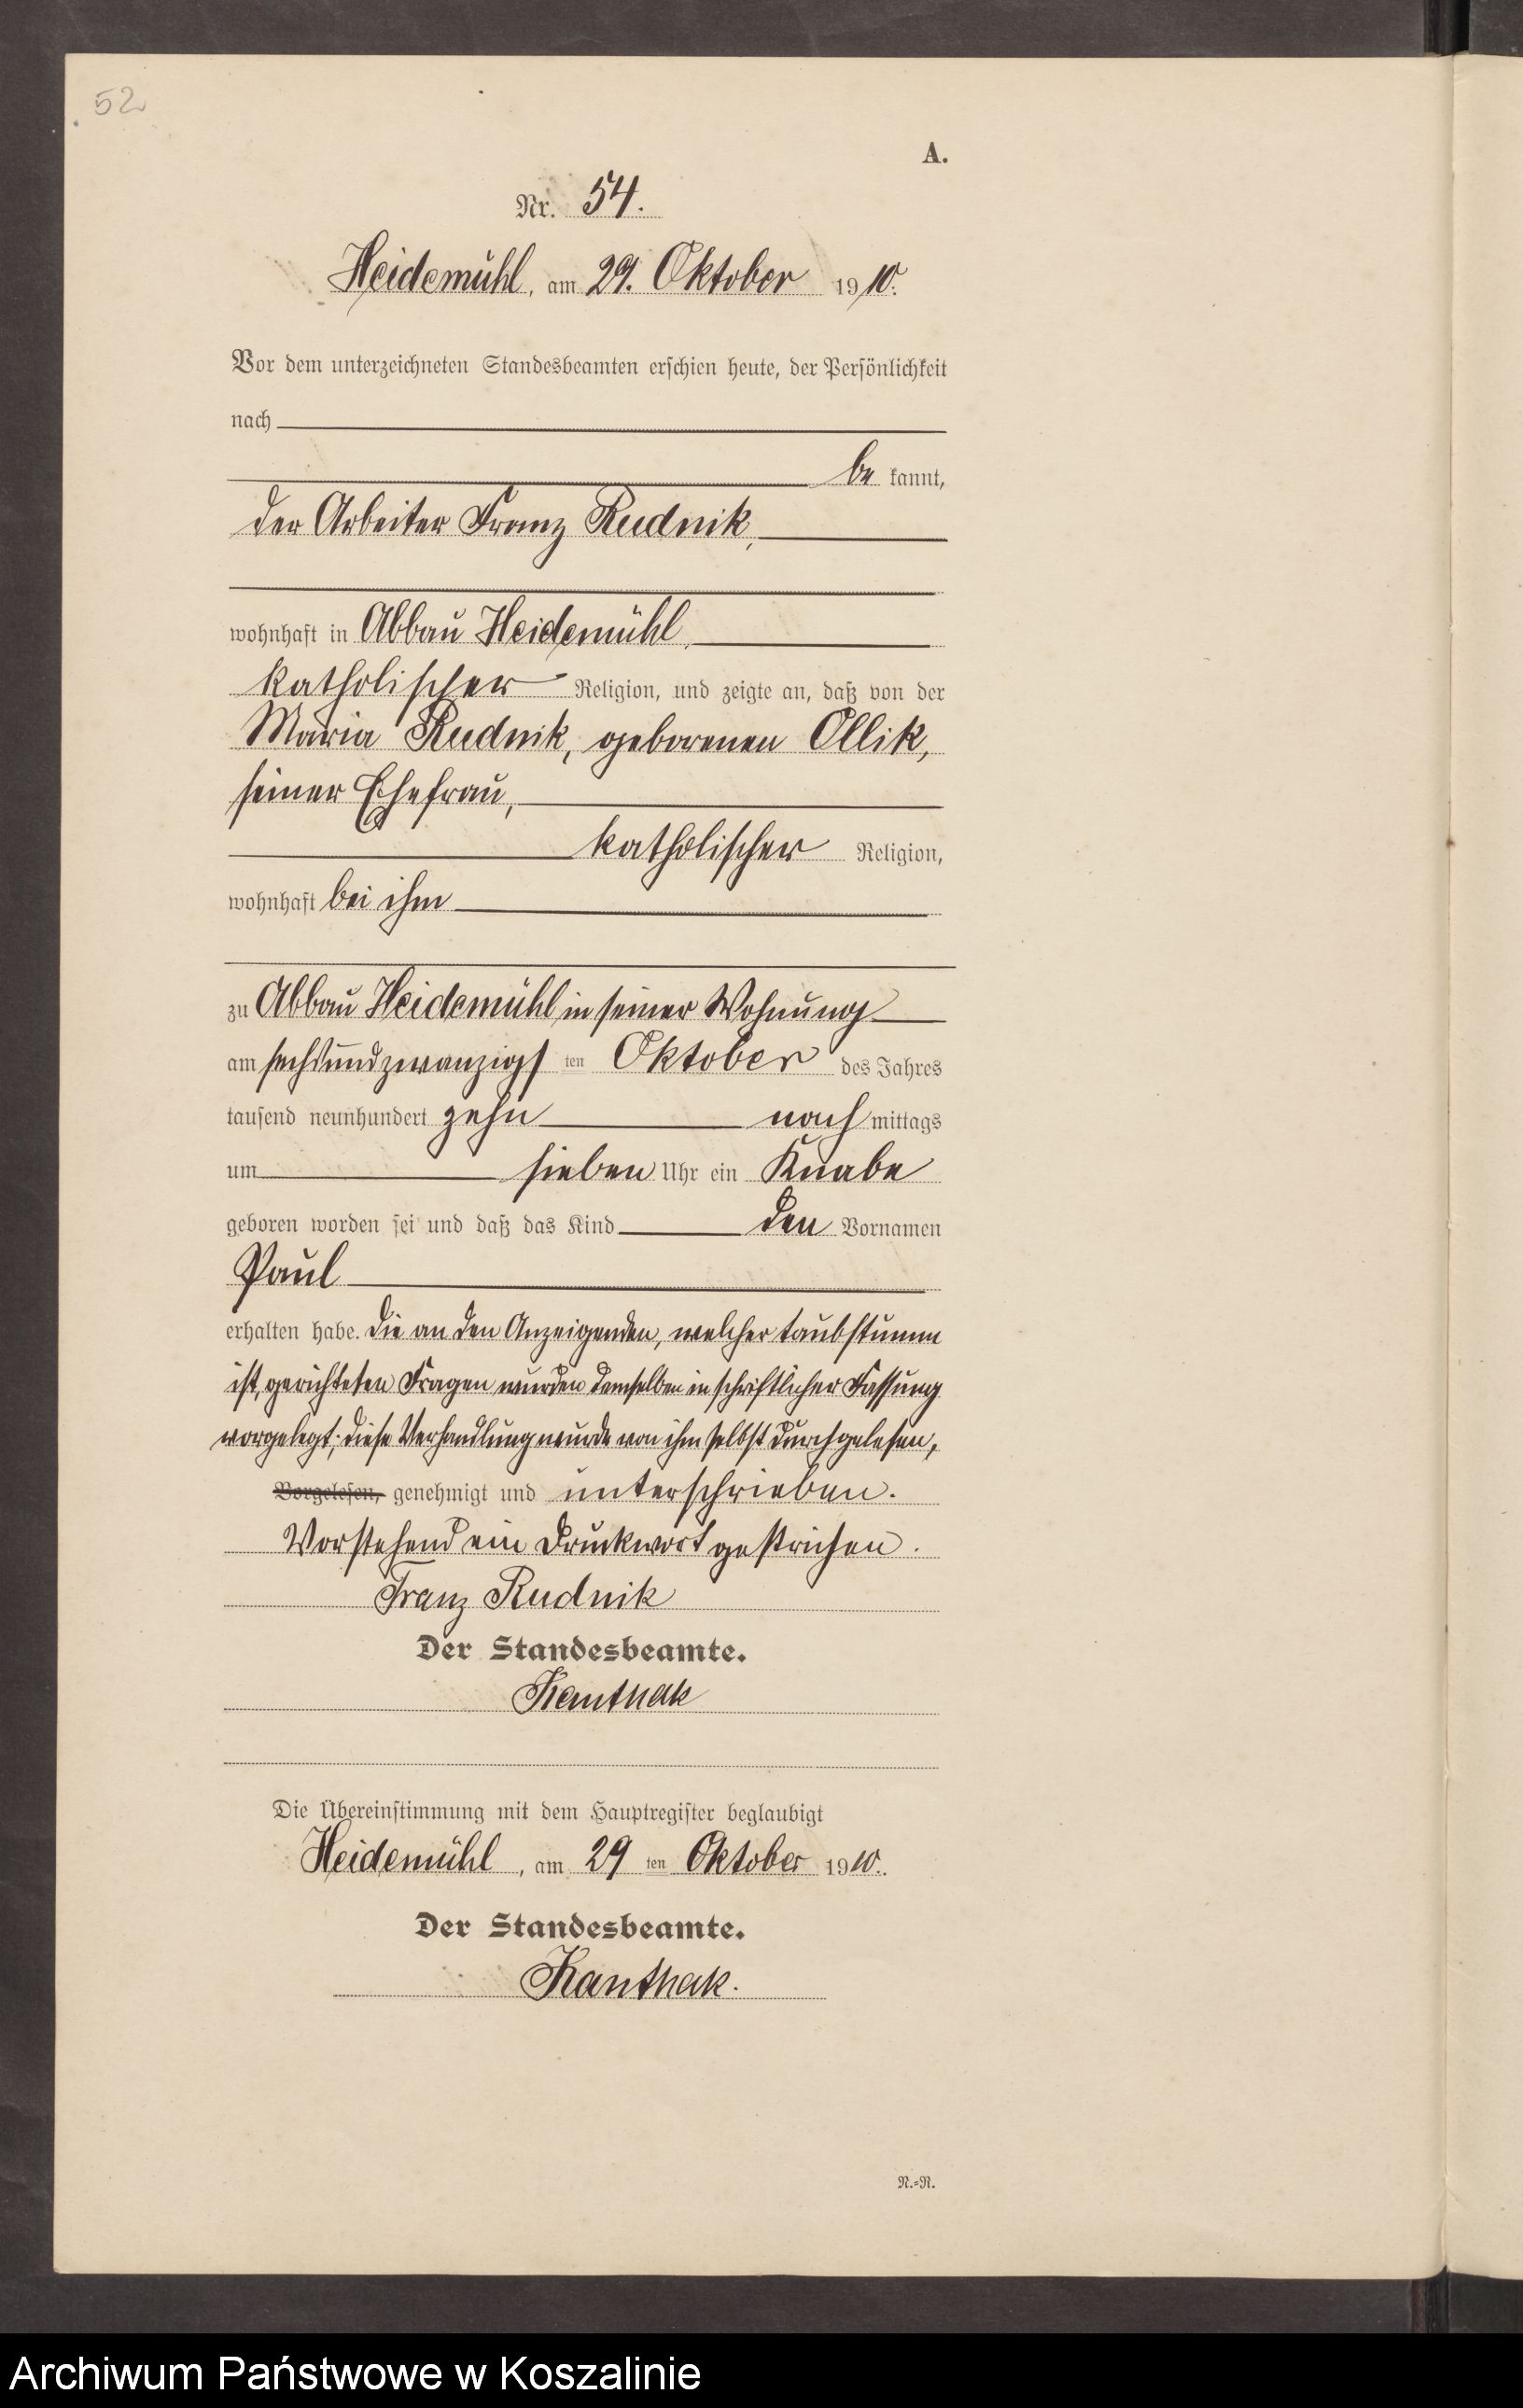 52
A.
Nr. 54.
Heidemühl, am 29. Oktober 1910.
Vor dem unterzeichneten Standesbeamten erschien heute, der Persönlichkeit
nach
be kannt,
der Arbeiter Franz Rudnik,
wohnhaft in Abbau Heidemühl,
katholischer Religion, und zeigte an, daß von der
Maria Rudnik, geborenen Ollik,
seiner Ehefrau,
katholischer Religion,
wohnhaft bei ihm
zu Abbau Heidemühl in seiner Wohnung
am sechsundzwanzigsten Oktober des Jahres
tausend neunhundert zehn nachmittags
um sieben Uhr ein Knabe
geboren worden sei und daß das Kind den Vornamen
Paul
erhalten habe. Die an den Anzeigenden, welcher taubstumm
ist, gerichteten Fragen wurden demselben in schriftlicher Fassung
vorgelegt; diese Verhandlung wurde von ihm selbst durchgelesen,
Vorgelesen, genehmigt und unterschrieben.
Vorstehend ein Druckwort gestrichen.
Franz Rudnik
Der Standesbeamte.
Kanthak
Die Übereinstimmung mit dem Hauptregister beglaubigt
Heidemühl, am 29 ten Oktober 1910.
Der Standesbeamte.
Kanthak.
N.=N.
Archiwum Państwowe w Koszalinie